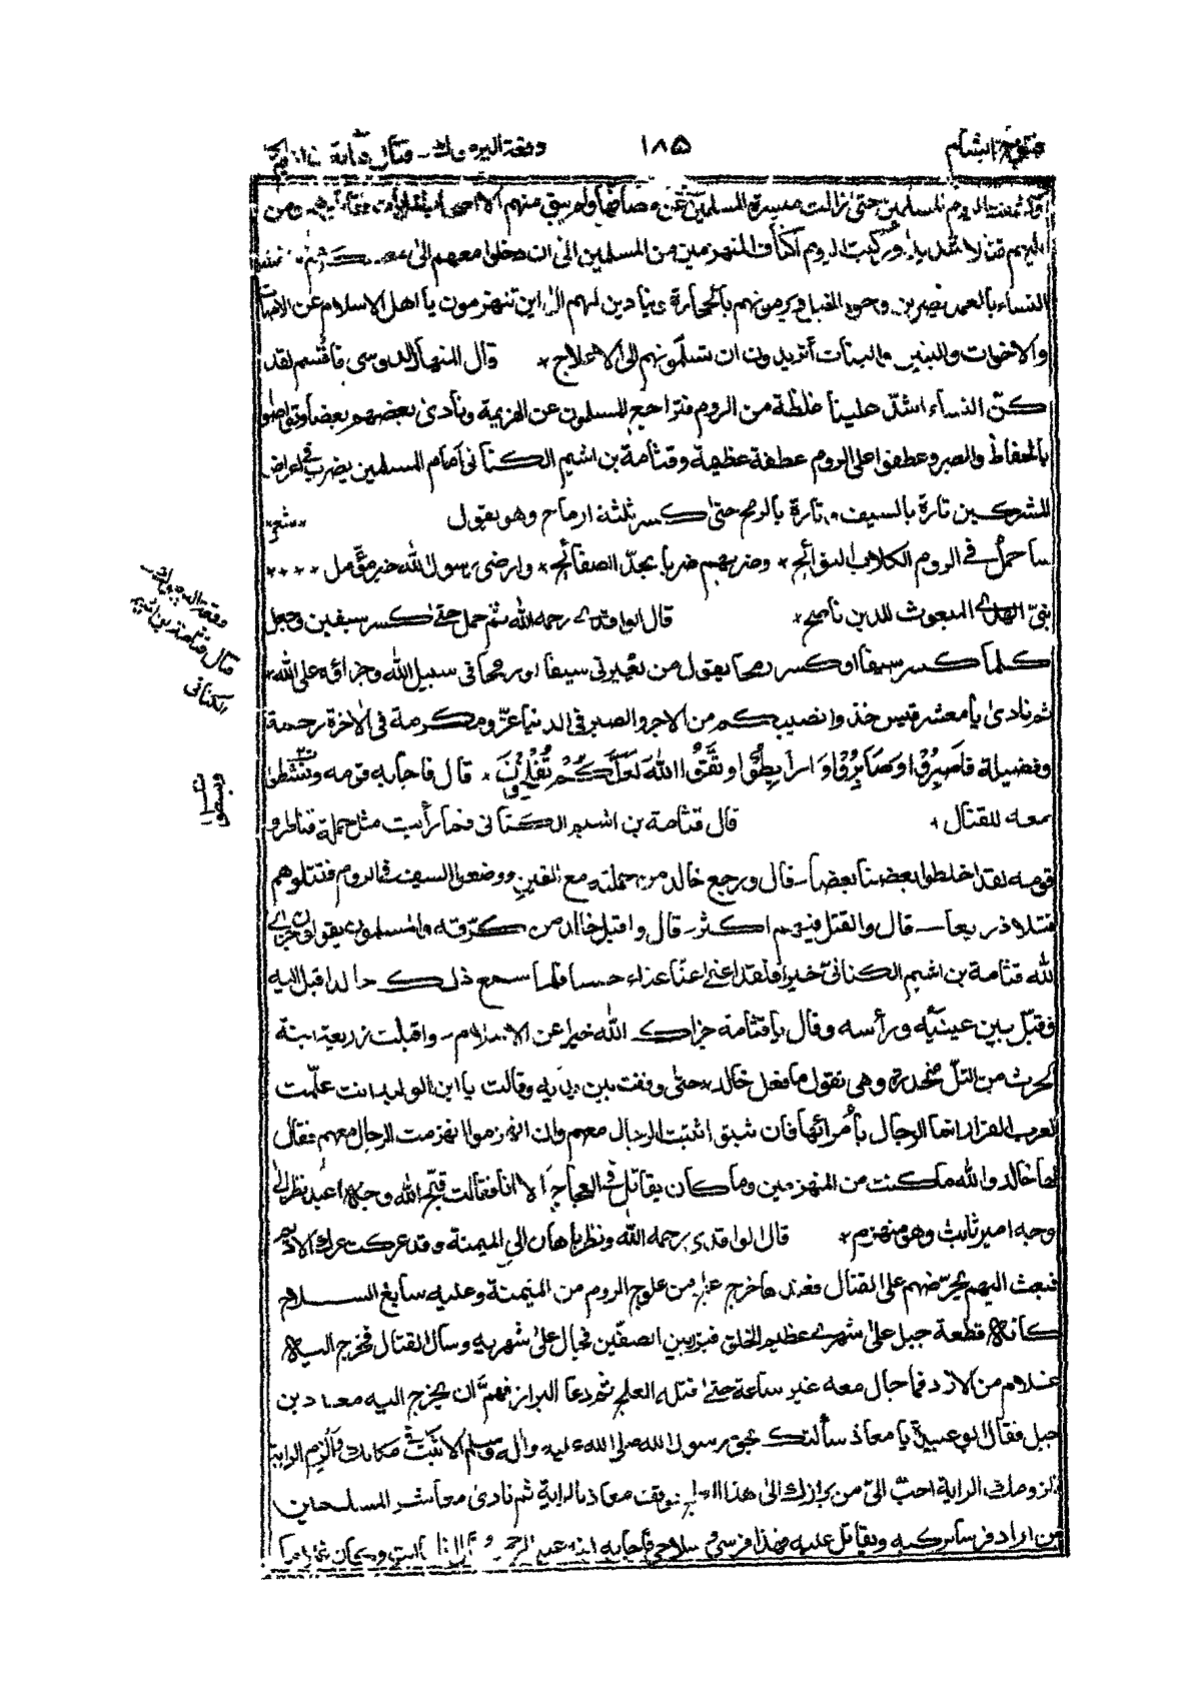 فتوح الشام ١٨٥ وقعة اليرموك - قتال قثامة بن اشيم
الروم المسلمين حتى زالت ميسرة المسلمين عن مصافها ولم يبق منهم الا
قتالا شديدا وركبت الروم اكتاف المنهزمين من المسلمين الى ان دخلوا معهم الى
النساء بالعمد يضربن وجوه الخيل ويرمونهم بالحجارة وينادين لهم الى اين تنهزمون يا اهل الاسلام عن الامهات
والاخوات والبنين والبنات أتريدون ان تسلمونهم الى الاعلاج * قال المنهال الدوسي فاقسم لقد
كنّ النساء اشدّ علينا غلظة من الروم فتراجع المسلمون عن الهزيمة ونادى بعضهم بعضا وتواصوا
بالحفاظ والصبر وعطفوا على الروم عطفة عظيمة وقثامة بن اشيم الكناني أمام المسلمين يضرب في اعراض
المشركين تارة بالسيف وتارة بالرمح حتى كسر ثلثة ارماح وهو يقول * شعر *
ساحمل في الروم الكلاب النوائح * وضربهم ضربا بحدّ الصفائح * وارضي رسول الله خير مؤمّل * * * *
نبيّ الهدى المبعوث للدين ناصح * قال الواقدي رحمه الله ثم حمل حتى كسر سيفين وجعل
كلما كسر سيفا او كسر رمحا يقول من يعيرني سيفا او رمحا في سبيل الله وجزاؤه على الله *
ثم نادى يا معشر قيس خذوا نصيبكم من الاجر والصبر في الدنيا عزّ ومكرمة في الآخرة رحمة
وفضيلة فَاصْبِرُوْا وَصَابِرُوْا وَرَابِطُوْا وَتَّقُوا اللّٰهَ لَعَلَّكُمْ تُفْلِحُوْنَ * قال فاجابه قومه ونشطوا
معه للقتال * قال قثامة بن اشيم الكناني فما رأيت مثل حملة قناطر و
قومه لقد اخلطوا بعضنا بعضا - قال ورجع خالد من حملته مع الفين ووضعوا السيف في الروم فقتلوهم
قتلا ذريعا - قال والقتل فيهم اكثر - قال واقبل خالد من كرّته والمسلمون يقولون جزى
الله قثامة بن اشيم الكناني خيرا فلقد اغنى عنا غناء حسنا فلما سمع ذلك خالد اقبل اليه
فقبّل بين عينيه ورأسه وقال يا قثامة جزاك الله خيرا عن الاسلام - واقبلت زريعة ابنة
الحرث من التلّ منحدرة وهي تقول ما فعل خالد * حتى وقفت بين يديه وقالت يا ابن الوليد انت علّمت
العرب الفرار انما الرجال بأمرائها فان ثبتوا ثبتت الرجال معهم وان انهزموا انهزمت الرجال معهم فقال
لها خالد والله ما كنت من المنهزمين وما كان يقاتل في العجاجة الا انا فقالت قبّح الله وجها عبد نظر الى
وجه امير ثابت وهو منهزم * قال الواقدي رحمه الله ونظر باهان الى الميمنة وقد عركت عرك الاديم
فبعث اليهم يحرّضهم على القتال فعندها خرج علج من علوج الروم من الميمنة وعليه سابغ السلاح
كانه قطعة جبل على شهري عظيم الخلق فبرز بين الصفّين فجال على شهريه وسأل القتال فخرج اليه
غلام من الازد فما جال معه غير ساعة حتى قتله العلج ثم دعا البراز فهمّ ان يخرج اليه معاذ بن
جبل فقال ابو عبيدة يا معاذ سألتك بحق رسول الله صلى الله عليه وآله وسلم الا ثبتّ مكانك والزم الراية
لزومك الراية احبّ الىّ من برازك الى هذا العلج فوقف معاذ بالراية ثم نادى معاشر المسلمين
من اراد فرسا يركبه ويقاتل عليه فهذا فرسي وسلاحي فأجابه ابنه عبد الرحمن وكان غلاما
وقعة اليرموك -
قتال قثامة بن اشيم
الكناني